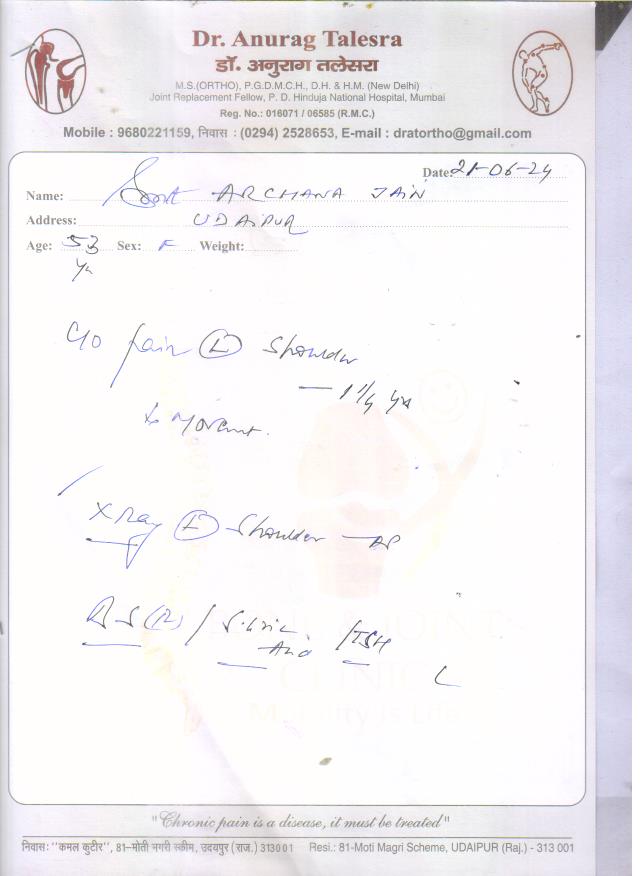 Dr. Anurag Talesra
डॉ. अनुराग तलेसरा
M.S.(ORTHO), P.G.D.M.C.H., D.H. & H.M. (New Delhi)
Joint Replacement Fellow, P. D. Hinduja National Hospital, Mumbai
Reg. No.: 016071 / 06585 (R.M.C.)
Mobile : 9680221159, निवास : (0294) 2528653, E-mail : dratortho@gmail.com
Date: 21-06-24
Name: Smt ARCHANA JAIN
Address: UDAIPUR
Age: 53 Sex: F Weight:
Yr
C/o Pain (L) Shoulder
— 1 1/4 yrs
Movemt.
X Ray (L) Shoulder — AP
BS(R) / S. Uric / TSH
Acid
JOINT
CLINIC
Mobility is Life
"Chronic pain is a disease, it must be treated"
निवास: "कमल कुटीर", 81-मोती मगरी स्कीम, उदयपुर (राज.) 313001 Resi.: 81-Moti Magri Scheme, UDAIPUR (Raj.) - 313 001